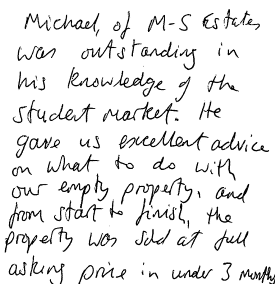 Michael, of M-S Estates,
was outstanding in
his knowledge of the
student market. He
gave us excellent advice
on what to do with
our empty property, and
from start to finish, the
property was sold at full
asking price in under 3 months